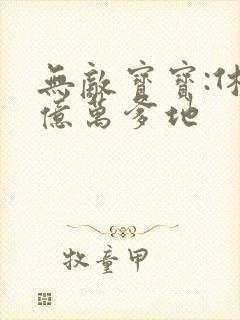 無敵寶寶:休
億萬爹地
牧童甲